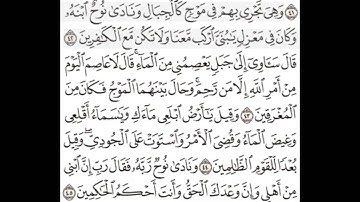 ٤١ وَهِىَ تَجْرِى بِهِمْ فِى مَوْجٍ كَٱلْجِبَالِ وَنَادَىٰ نُوحٌ ٱبْنَهُۥ
وَكَانَ فِى مَعْزِلٍ يَٰبُنَىَّ ٱرْكَب مَّعَنَا وَلَا تَكُن مَّعَ ٱلْكَٰفِرِينَ ٤٢
قَالَ سَـَٔاوِىٓ إِلَىٰ جَبَلٍ يَعْصِمُنِى مِنَ ٱلْمَآءِ ۚ قَالَ لَا عَاصِمَ ٱلْيَوْمَ
مِنْ أَمْرِ ٱللَّهِ إِلَّا مَن رَّحِمَ ۚ وَحَالَ بَيْنَهُمَا ٱلْمَوْجُ فَكَانَ مِنَ
ٱلْمُغْرَقِينَ ٤٣ وَقِيلَ يَٰٓأَرْضُ ٱبْلَعِى مَآءَكِ وَيَٰسَمَآءُ أَقْلِعِى
وَغِيضَ ٱلْمَآءُ وَقُضِىَ ٱلْأَمْرُ وَٱسْتَوَتْ عَلَى ٱلْجُودِىِّ ۖ وَقِيلَ
بُعْدًا لِّلْقَوْمِ ٱلظَّٰلِمِينَ ٤٤ وَنَادَىٰ نُوحٌ رَّبَّهُۥ فَقَالَ رَبِّ إِنَّ ٱبْنِى
مِنْ أَهْلِى وَإِنَّ وَعْدَكَ ٱلْحَقُّ وَأَنتَ أَحْكَمُ ٱلْحَٰكِمِينَ ٤٥